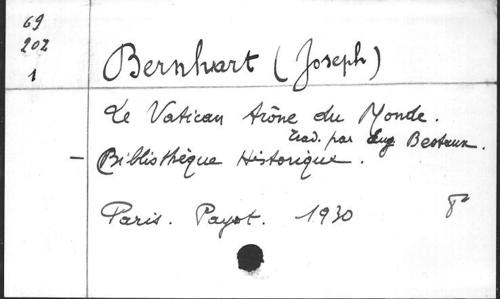 69
202
1
Bernhart (Joseph)
Le Vatican trône du Monde.
trad. par Eug Bestaux.
— Bibliothèque Historique.
Paris. Payot. 1930 8°